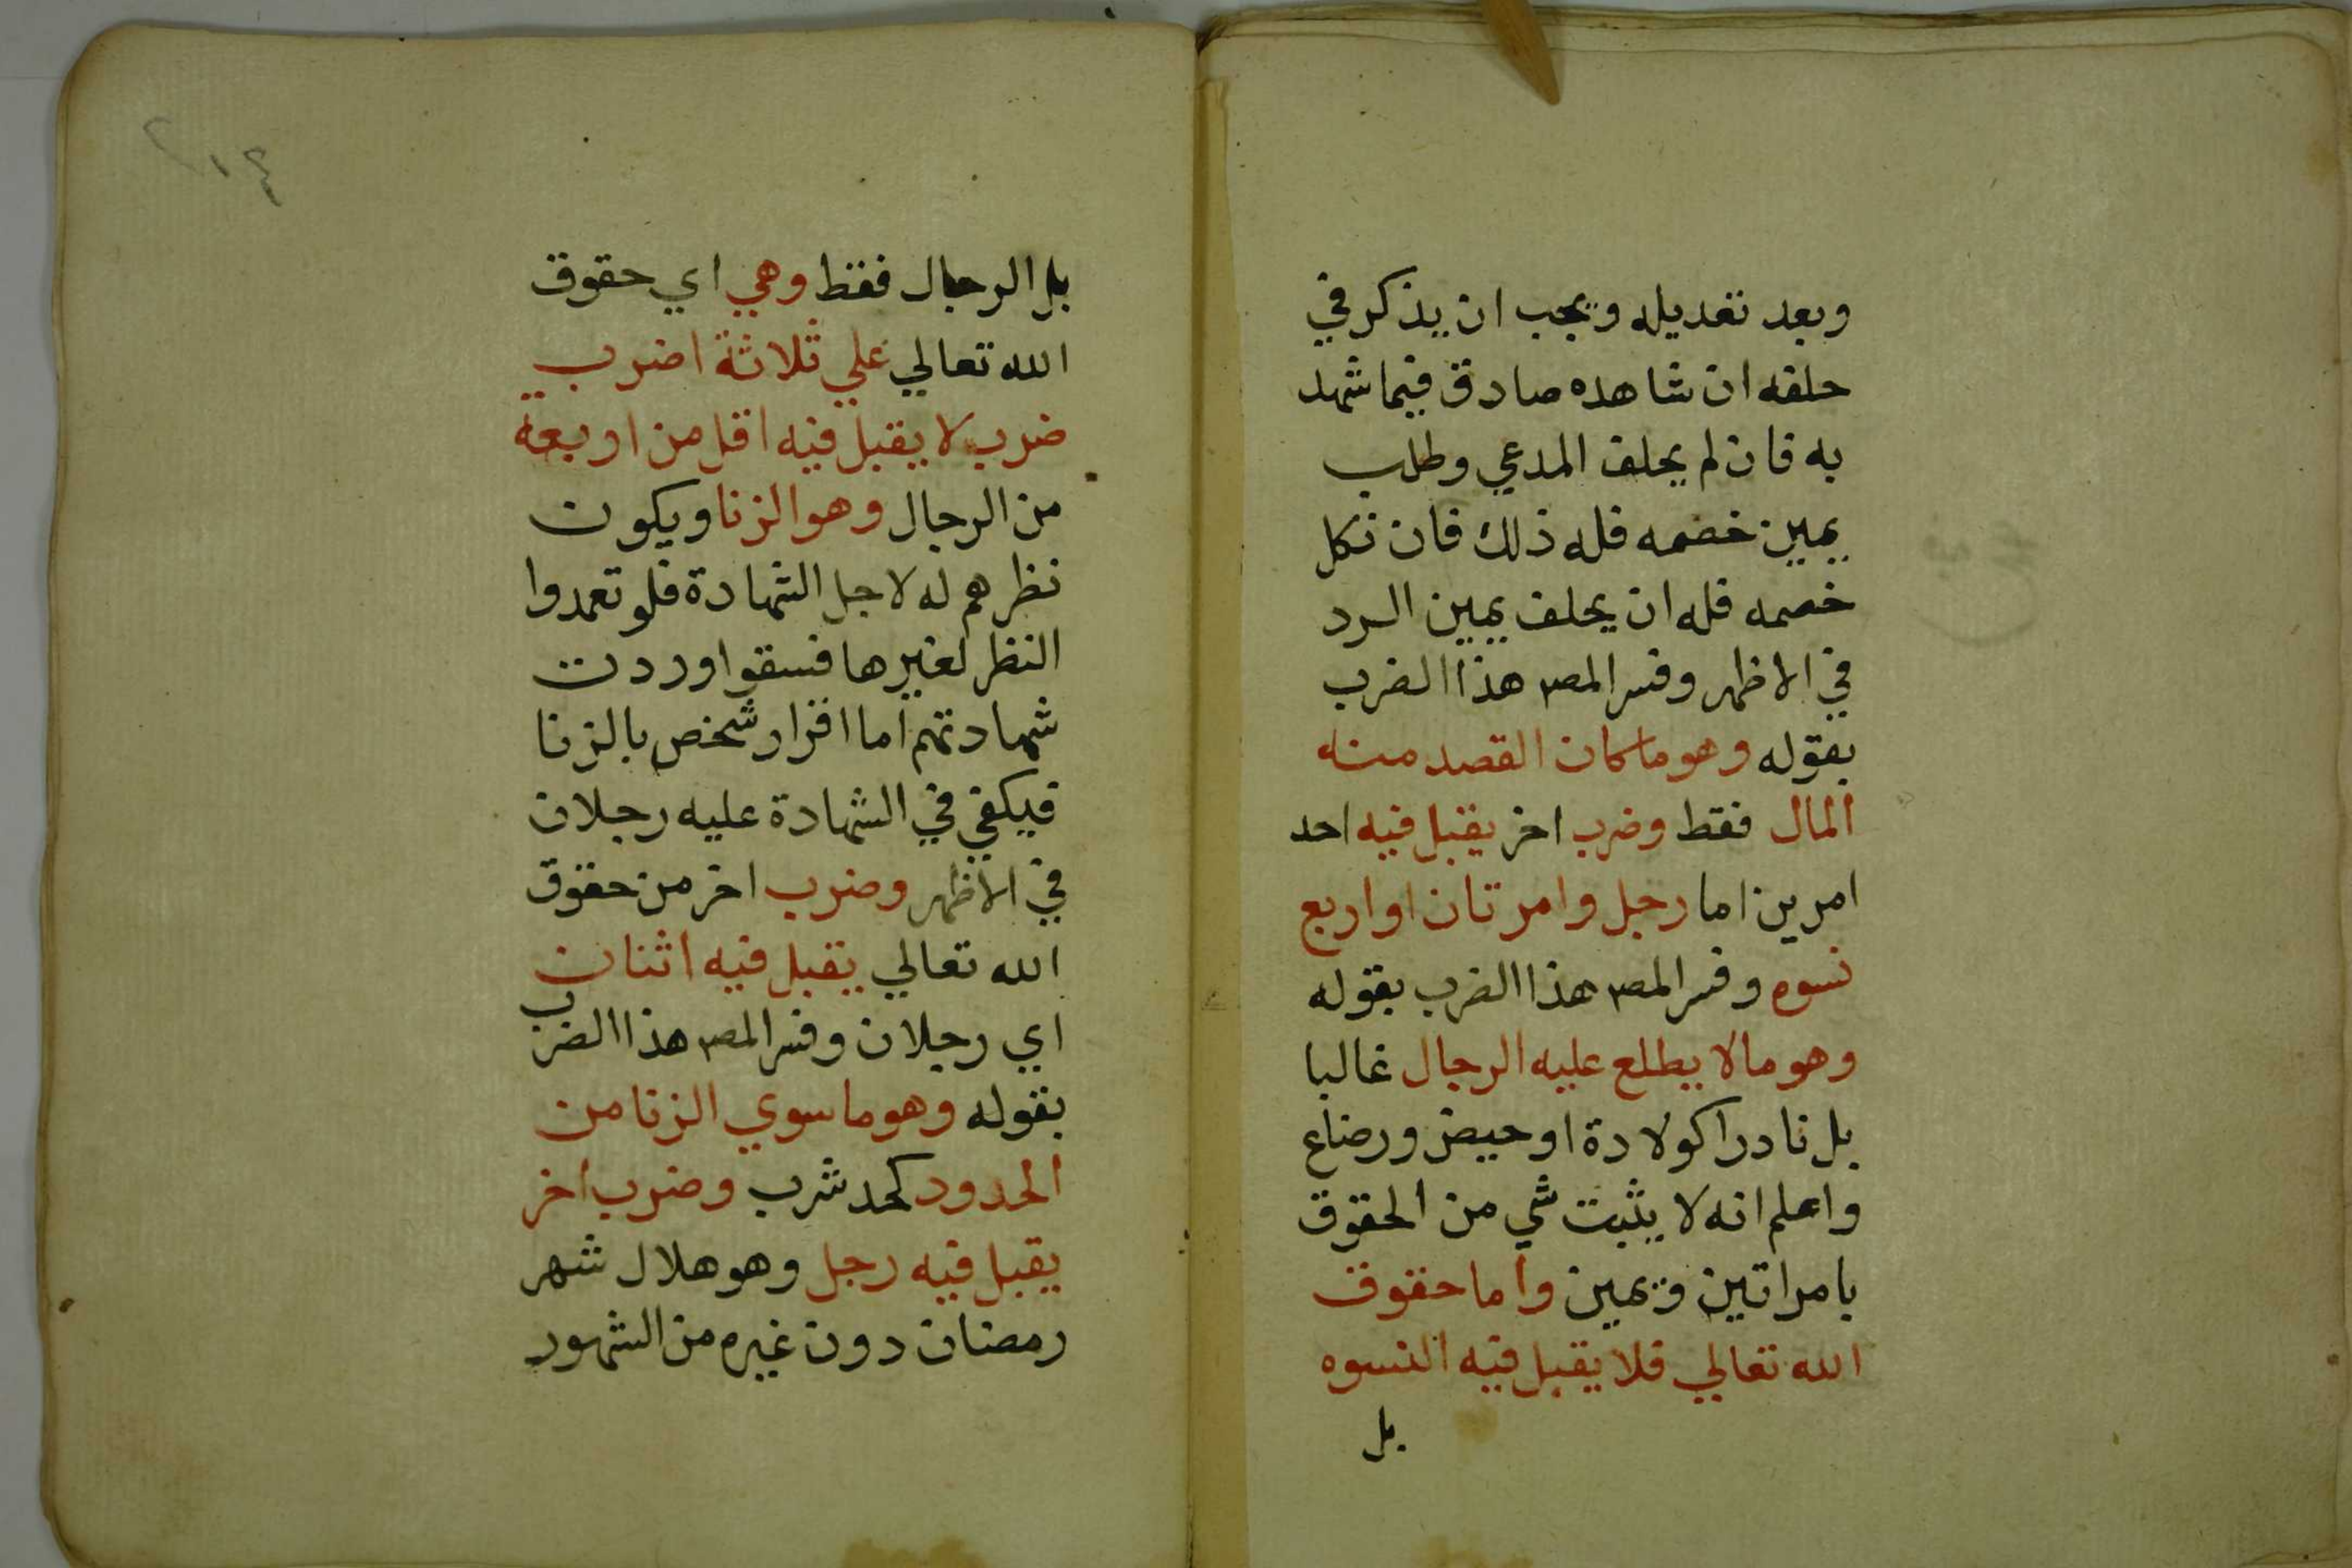 وبعد تعديله ويجب ان يذكر في
حلفه ان شاهده صادق فيما شهد
به فان لم يحلف المدعي وطلب
يمين خصمه فله ذلك فان نكل
خصمه فله ان يحلف يمين الرد
في الاظهر وفسر المصـ هذا الضرب
بقوله وهو ما كان القصد منه
المال فقط وضرب اخر يقبل فيه احد
امرين اما رجل وامرتان او اربع
نسوه وفسر المصـ هذا الضرب بقوله
وهو ما لا يطلع عليه الرجال غالبا
بل نادرا كولادة او حيض ورضاع
واعلم انه لا يثبت شي من الحقوق
بامراتين ويمين واما حقوق
الله تعالي فلا يقبل فيه النسوه
بل
بل الرجال فقط وهي اي حقوق
الله تعالي علي ثلاثة اضرب
ضرب لا يقبل فيه اقل من اربعة
من الرجال وهو الزنا ويكون
نظرهم له لاجل الشهادة فلو تعمدوا
النظر لغيرها فسقوا وردت
شهادتهم اما اقرار شخص بالزنا
فيكفي في الشهادة عليه رجلان
في الاظهر وضرب اخر من حقوق
الله تعالي يقبل فيه اثنان
اي رجلان وفسر المصـ هذا الضرب
بقوله وهو ما سوي الزنا من
الحدود كحد شرب وضرب اخر
يقبل فيه رجل وهو هلال شهر
رمضان دون غيره من الشهور